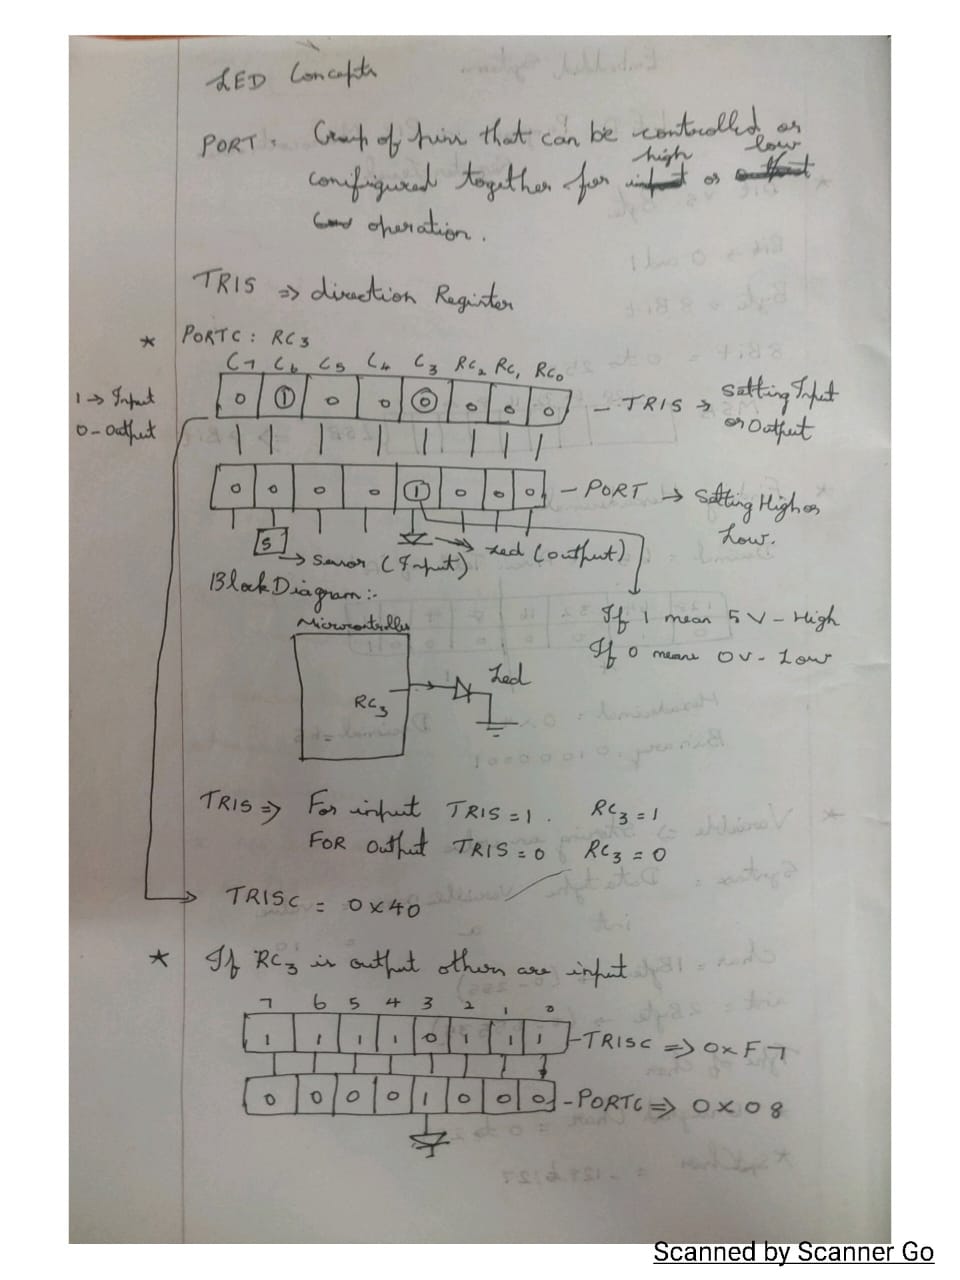 LED Concepts
PORT: Group of pins that can be controlled or
high low
configured together for input or output
operation.
TRIS => direction Register
* PORTC: RC3
C7 C6 C5 C4 C3 RC2 RC1 RC0
1 → Input
0 - Output
0 1 0 0 0 0 0 0 - TRIS → Setting Input
or Output
0 0 0 0 1 0 0 0 - PORT → Setting High or
Low.
S → Sensor (Input) → Led (output)
Block Diagram:-
If 1 mean 5V - High
If 0 means 0V - Low
Microcontroller
Led
RC3
TRIS => For input TRIS = 1. RC3 = 1
FOR Output TRIS = 0 RC3 = 0
TRISC = 0x40
* If RC3 is output others are input
7 6 5 4 3 2 1 0
1 1 1 1 0 1 1 1 - TRISC => 0xF7
0 0 0 0 1 0 0 0 - PORTC => 0x08
Scanned by Scanner Go